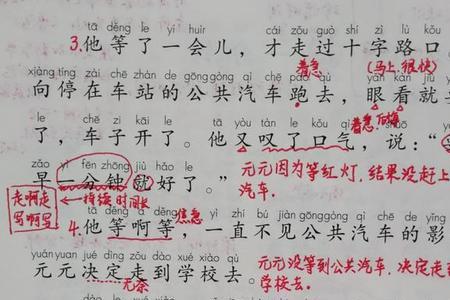 tā děng le yí huìr cái zǒu guò shí zì lù kǒu
3.他等了一会儿，才走过十字路口
着急 (马上.很快)
xiàng tíng zài chē zhàn de gōng gòng qì chē pǎo qù yǎn kàn
向停在车站的公共汽车跑去，眼看就
着急 后悔
tā yòu tàn le kǒu qì shuō
了，车子开了。他又叹了口气，说：“
zǎo yì fēn zhōng jiù hǎo le
早一分钟就好了。”
元元因为等红灯，结果没赶上
汽车。
走啊走
写啊写
持续时间长
焦急
tā děng a děng yì zhí bú jiàn gōng gòng qì chē de yǐng
4.他等啊等，一直不见公共汽车的影
yuán yuan jué dìng zǒu dào xué xiào qù
元元决定走到学校去。
元元没等到公共汽车，决定走
学校去。
无奈